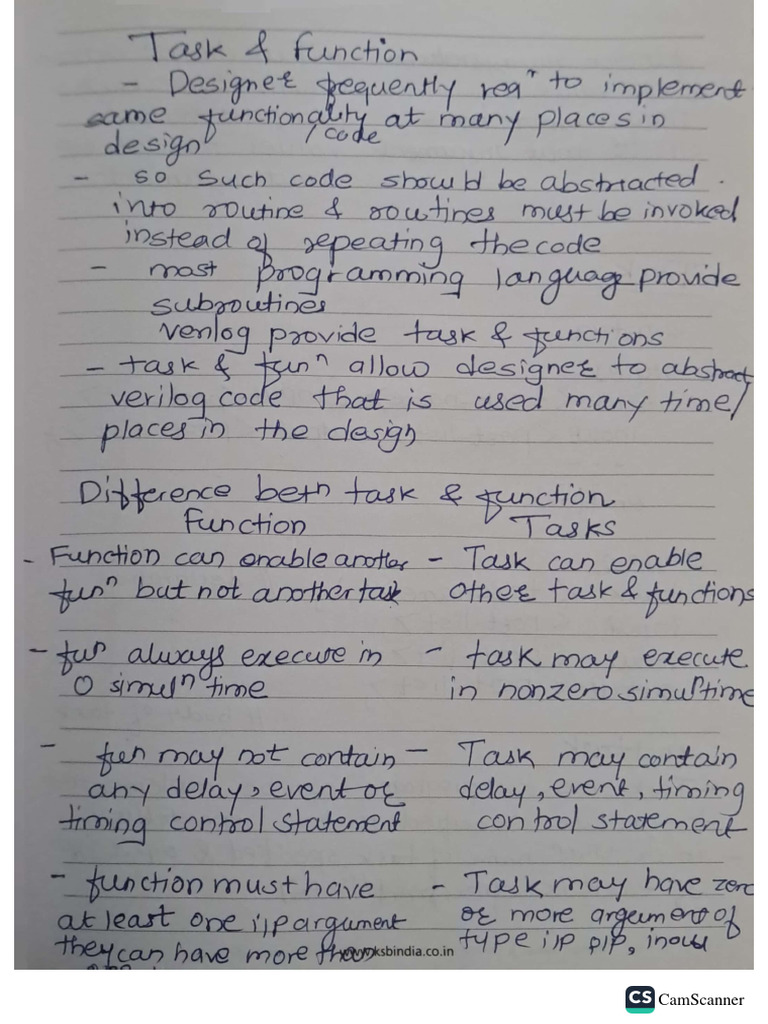 Task & function
- Designer frequently reqʳ to implement
same functionality at many places in
/code
design
- so such code should be abstracted.
into routine & routines must be invoked
instead of repeating the code
- most programming language provide
subroutines
verilog provide task & functions
- task & funⁿ allow designer to abstract
verilog code that is used many time/
places in the design
Difference betn task & function
Function Tasks
- Function can enable another - Task can enable
funⁿ but not another task other task & functions
- fun always execute in - task may execute
0 simulⁿ time in nonzero simul time
- fun may not contain - Task may contain
any delay, event or delay, event, timing
timing control statement control statement
- function must have - Task may have zero
at least one i/p argument or more argeument of
they can have more than type i/p o/p, inout
CS CamScanner